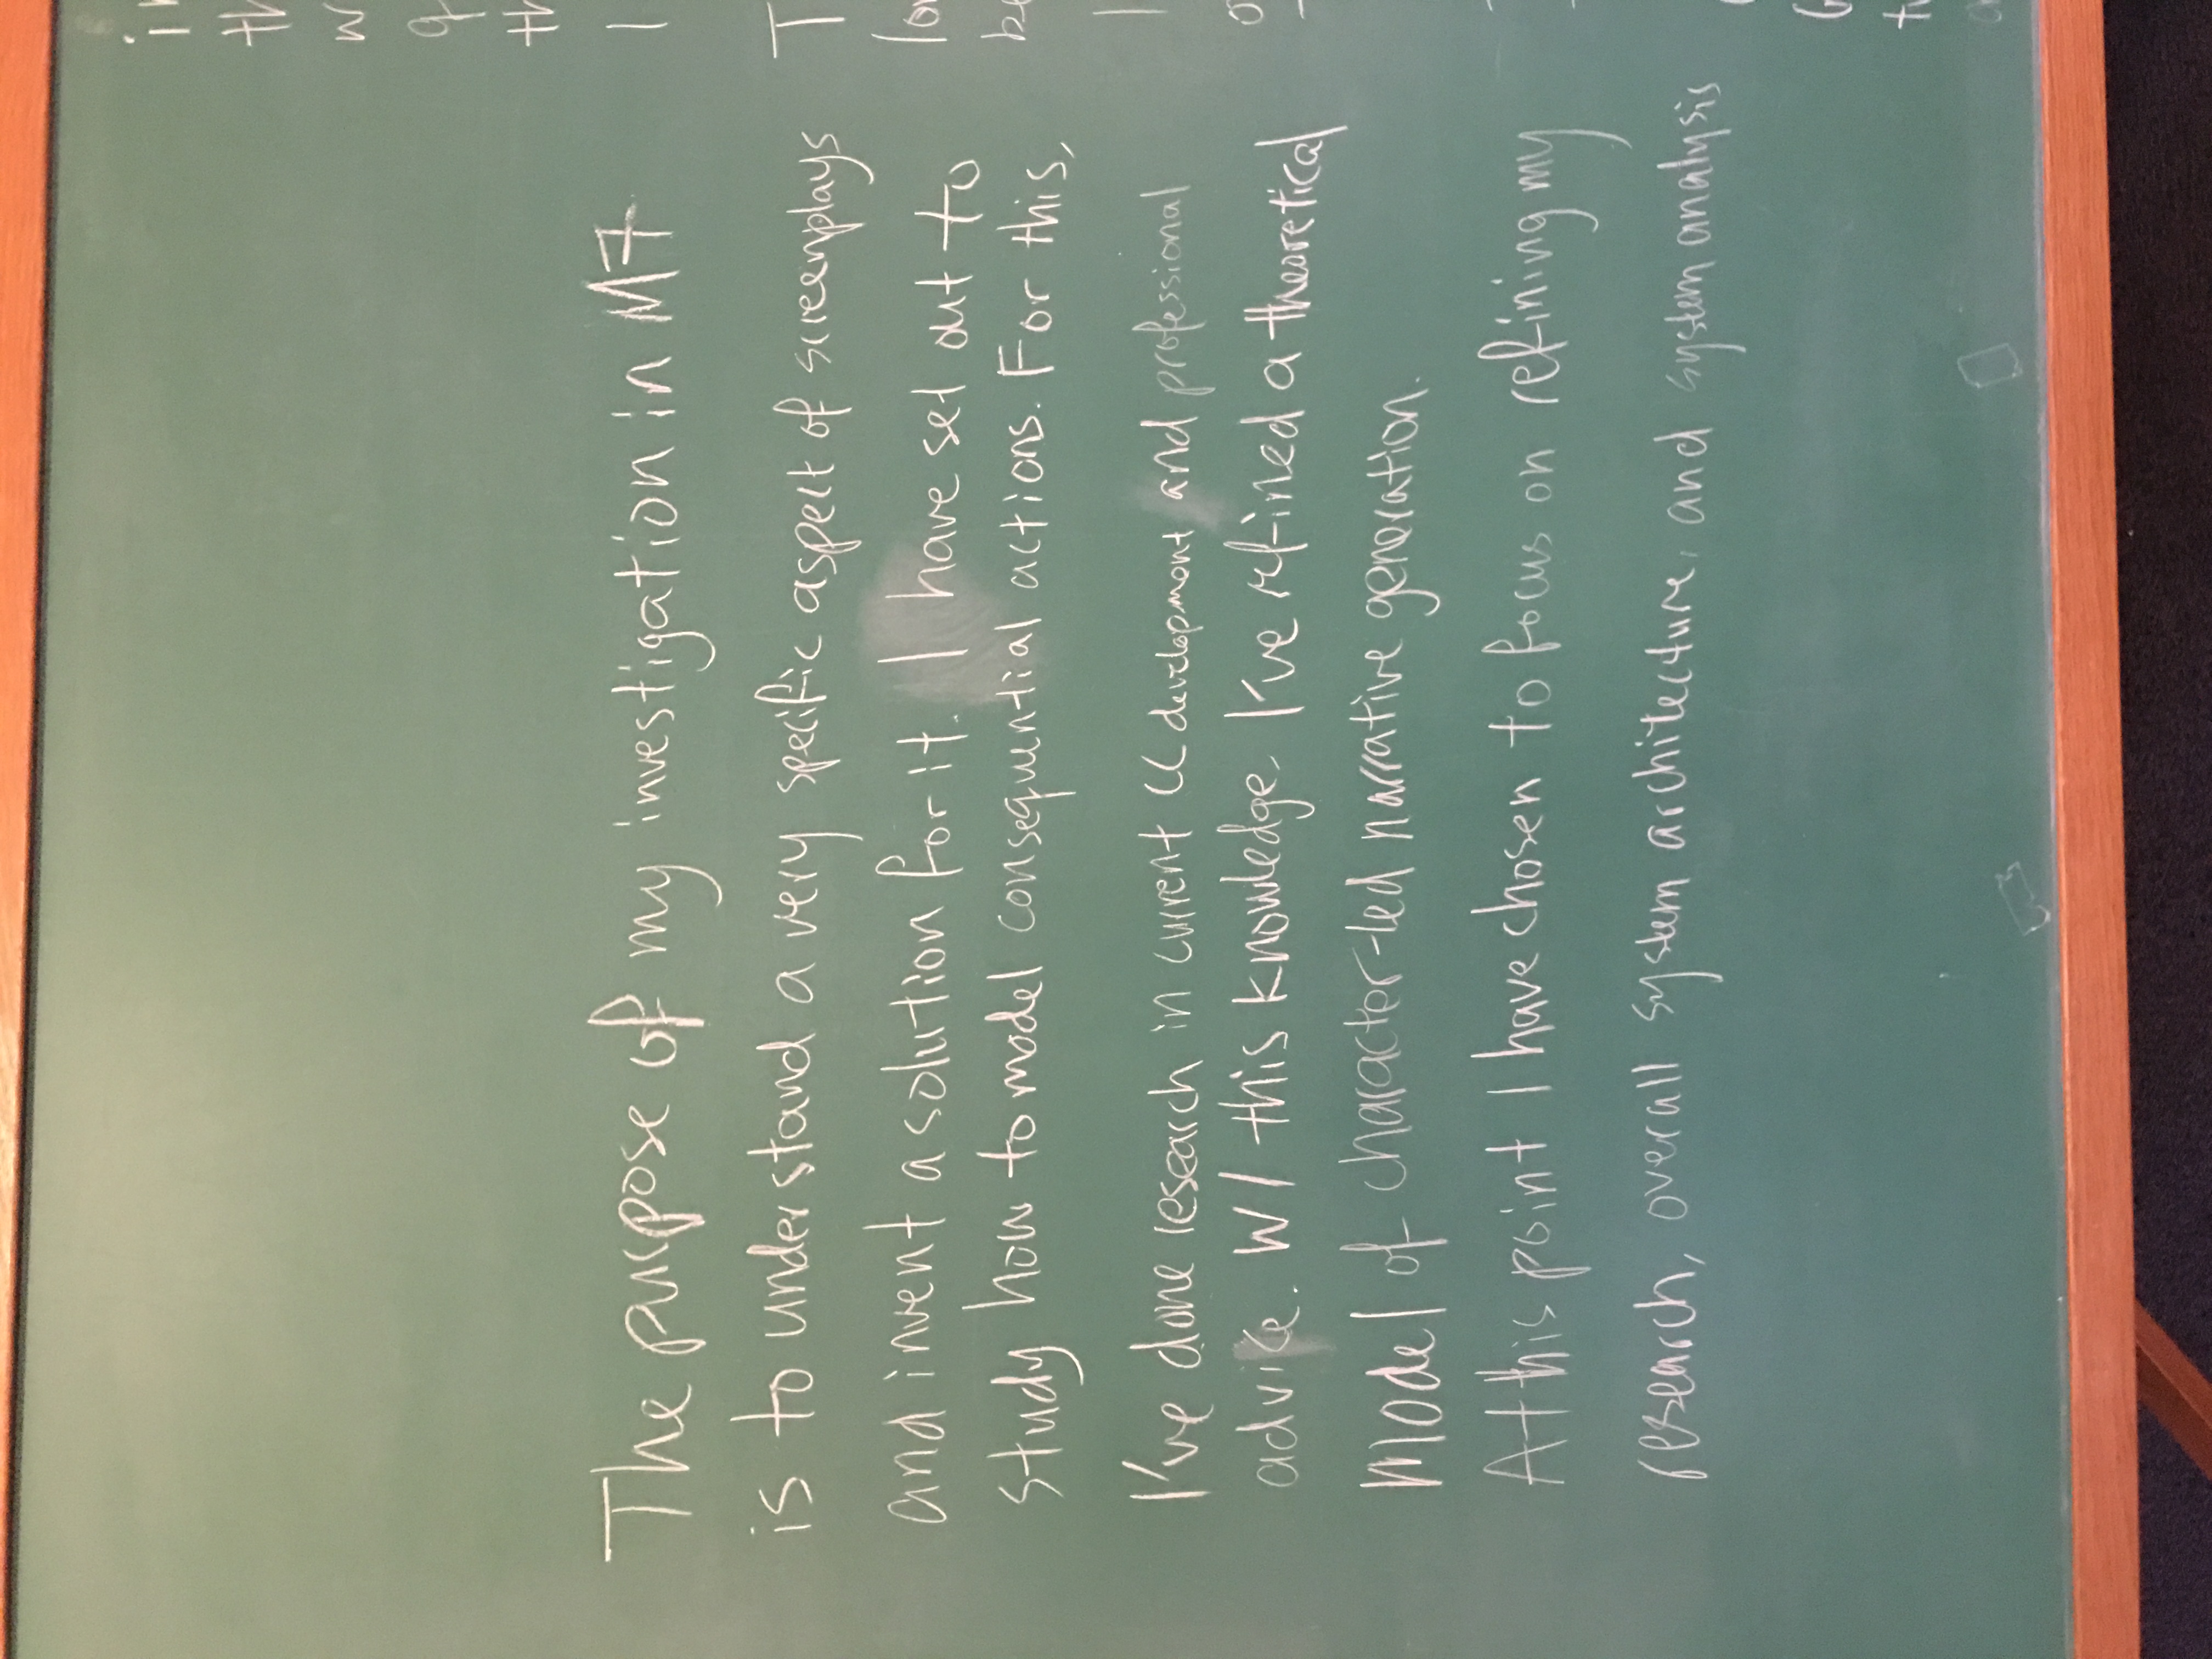 The purpose of my investigation in M7
is to understand a very specific aspect of screenplays
and invent a solution for it. I have set out to
study how to model consequential actions. For this,
I've done research in current CC development and professional
advice. W/ this knowledge, I've refined a theoretical
model of character-led narrative generation.
At this point I have chosen to focus on refining my
research, overall system architecture, and system analysis